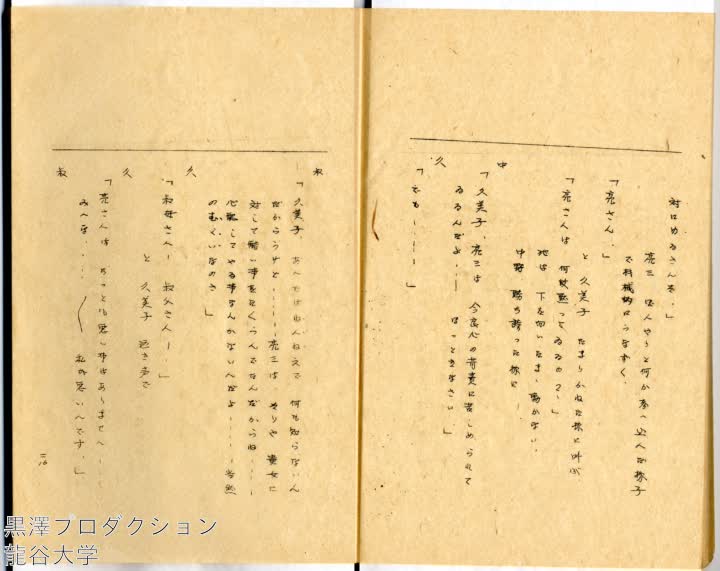 対にゆるさんぞ。」
亮三 ぼんやりと何か考へ込へだ様子
で機械的にうなずく。
「亮さん。」
と 久美子 たまりかねた様に叫ぶ
「亮さんは 何故黙ってゐるの?」
亮は 下を向いたまゝ動かない。
中
中野 勝ち誇った様に―
「久美子、亮三は 今良心の苛責に苦しめられて
ゐるんだよ…… ほっときなさい。」
久
「でも…………」
叔
「久美子、あへたはねんねえで 何も知らないん
だからうけど…………亮三は そりや 貴女に
対して酷い事をたくらんでたんだからね……
心配してやる事なんかないへだよ………当然
のむくいなのさ 」
久
「叔母さん! 叔父さん!」
と 久美子 泣き声で
久
「亮さんは ちっとも悪い事はありませへ……
叔
みへな……… 私が悪いへです。」
二ノ一〇
黒澤プロダクション
龍谷大学